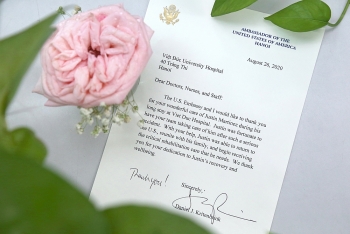 AMBASSADOR OF THE
UNITED STATES OF AMERICA
HANOI
August 26, 2020
Việt Đức University Hospital
40 Tràng Thi
Hanoi
Dear Doctors, Nurses, and Staff:
The U.S. Embassy and I would like to thank you
for your wonderful care of Justin Martinez during his
long stay at Viet Duc Hospital. Justin was fortunate to
have your team taking care of him after such a serious
accident. With your help, Justin was able to return to
the U.S., reunite with his family, and begin receiving
the critical rehabilitative care that he needs. We thank
you for your dedication to Justin's recovery and
wellbeing.
Thank you!
Sincerely,
Daniel J. Kritenbrink